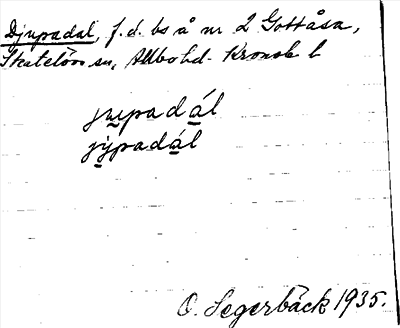 Djupadal, f.d. bs å nr 2 Gottåsa,
Skatelövs sn, Allbo hd. Kronob l
jupadál
jypadál
O. Segerbäck 1935.